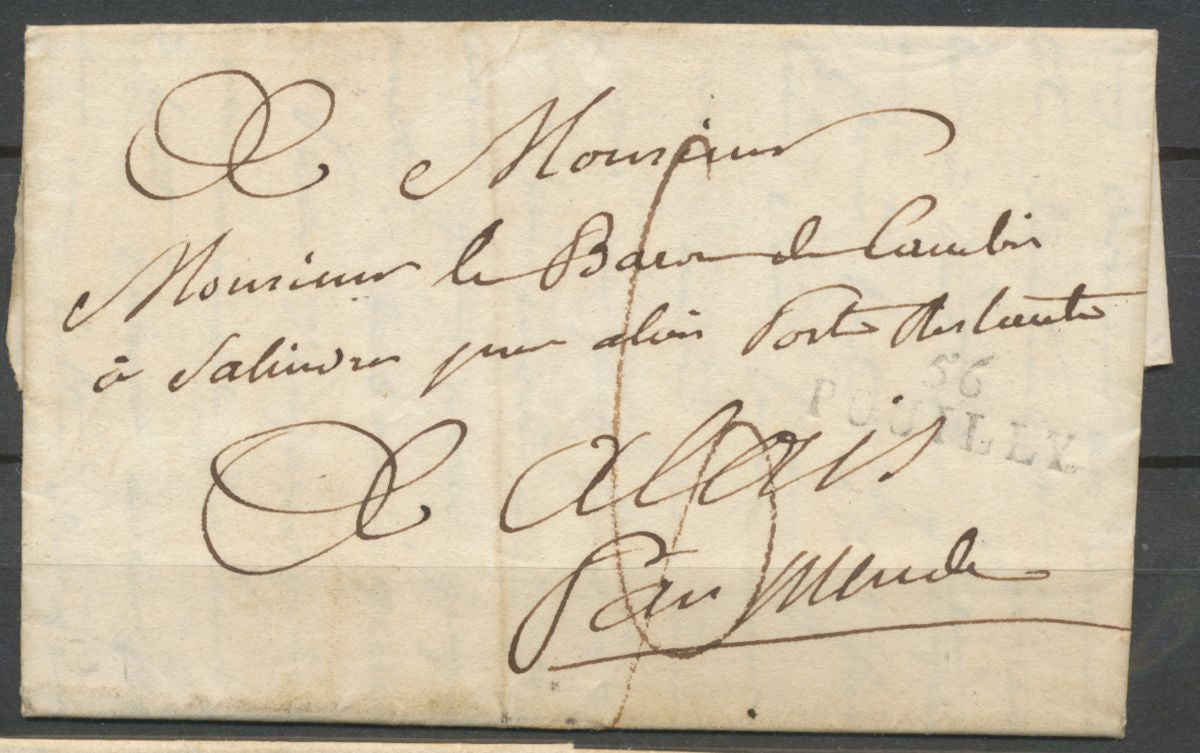 A Monsieur
Monsieur le Baron de Cambis
à Salindres par alais Poste Restante
56
POUILLY
A alais
Par Mende
6